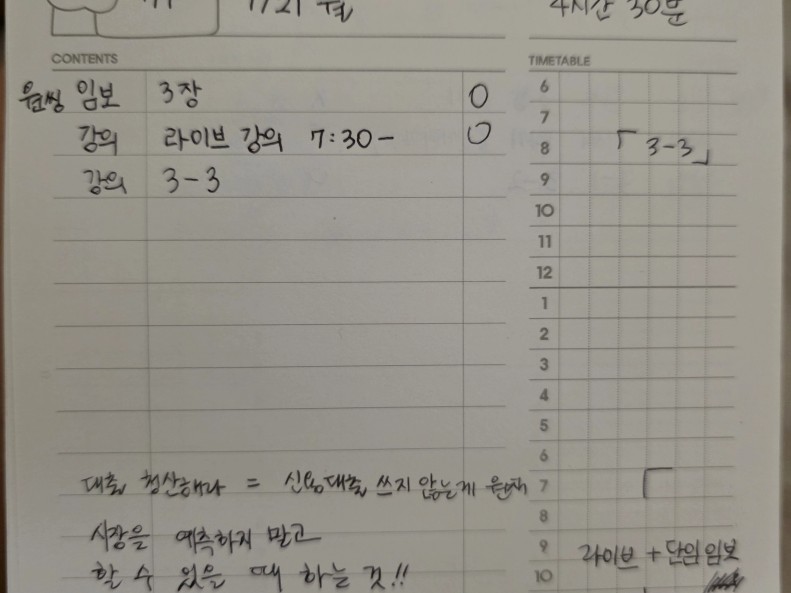 1/21 월
4시간 30분
CONTENTS
TIMETABLE
원씽 임보 3장 O
강의 라이브 강의 7:30- O
강의 3-3
대출 청산해라 = 신용대출 쓰지 않는게 원칙
시장을 예측하지 말고
할 수 있을 때 하는 것!!
6
7
8 「 3-3 」
9
10
11
12
1
2
3
4
5
6
7
8
9 라이브 + 단임 임보
10